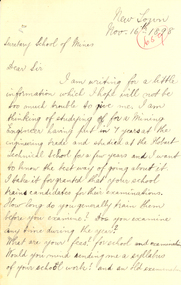 New Town
Nov. 16th 1898
Secretary School of Mines
Dear Sir
I am writing for a little
information which I hope will not be
too much trouble to give me. I am
thinking of studying of for a Mining
Engineer having put in 4 years at the
engineering trade and studied at the Hobart
Technical School for a few years and I want
to know the best way of going about it.
I take it for granted that your school
trains candidates for their examinations.
How long do you generally train them
before you examine? Do you examine
any time during the year?
What are your fees? for school and examination
Would you mind sending me a syllabus
of your school work? and an old examination